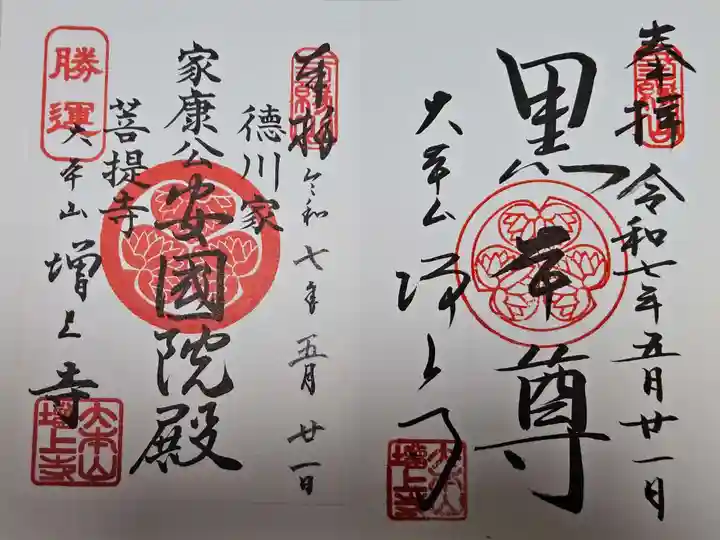 奉拝
令和七年五月廿一日
黒本尊
大本山
増上寺
大本山
増上寺
奉拝
令和七年五月廿一日
徳川家
家康公
安國院殿
菩提寺
勝運
大本山
増上寺
大本山
増上寺